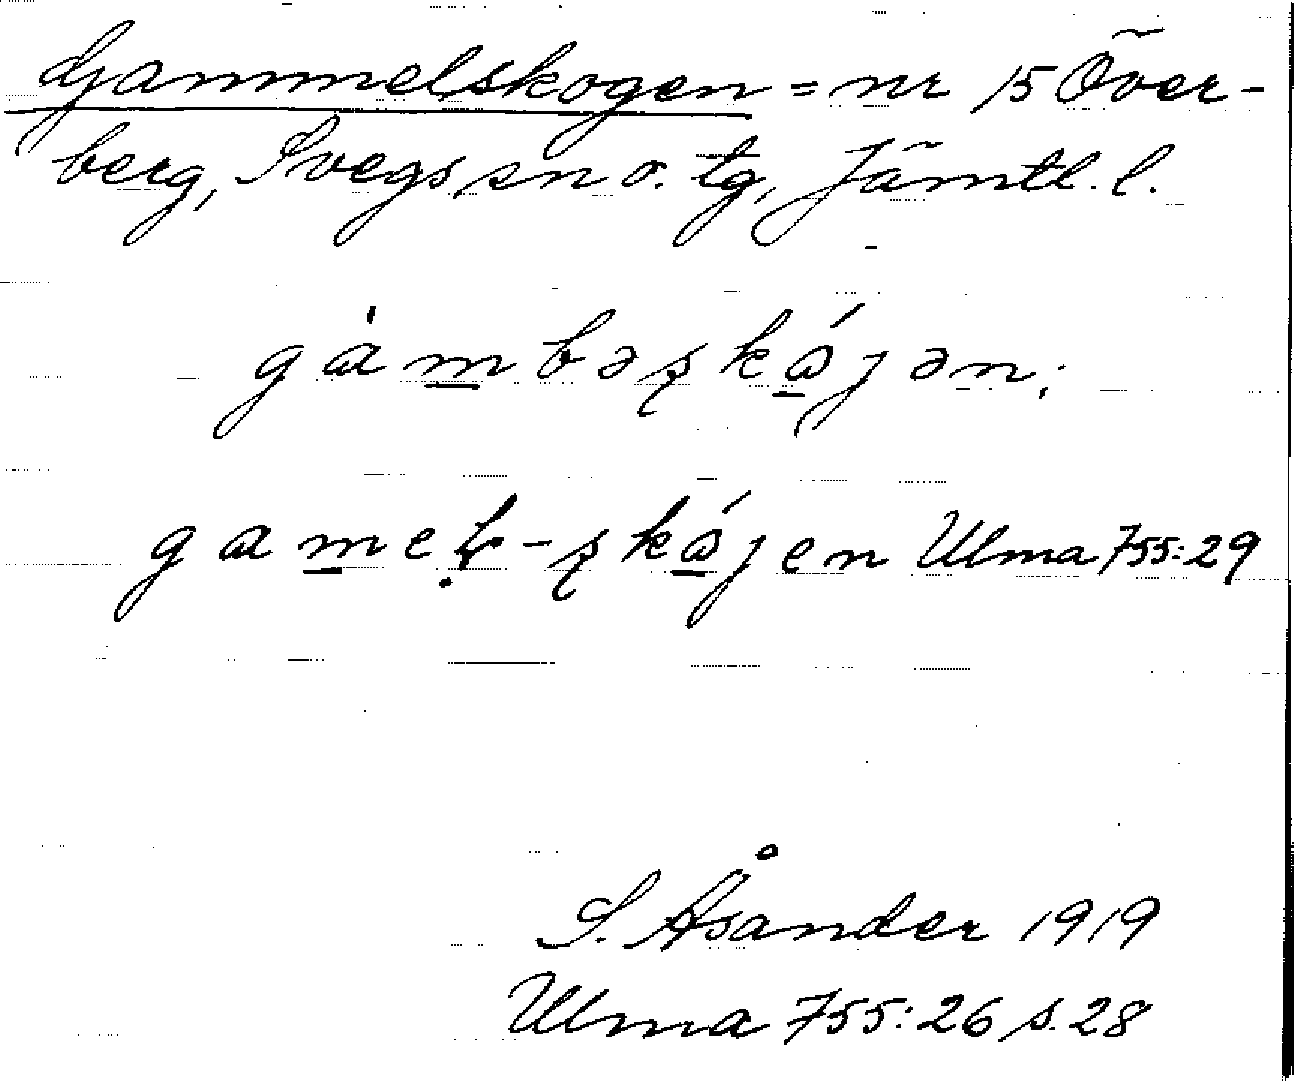 Gammelskogen = nr 15 Över-
berg, Svegs sn o. tg, Jämtl. l.
gàmbəʂkájən;
gameḷ-ʂkájen Ulma 755:29
S. Åsander 1919
Ulma 755:26 s. 28